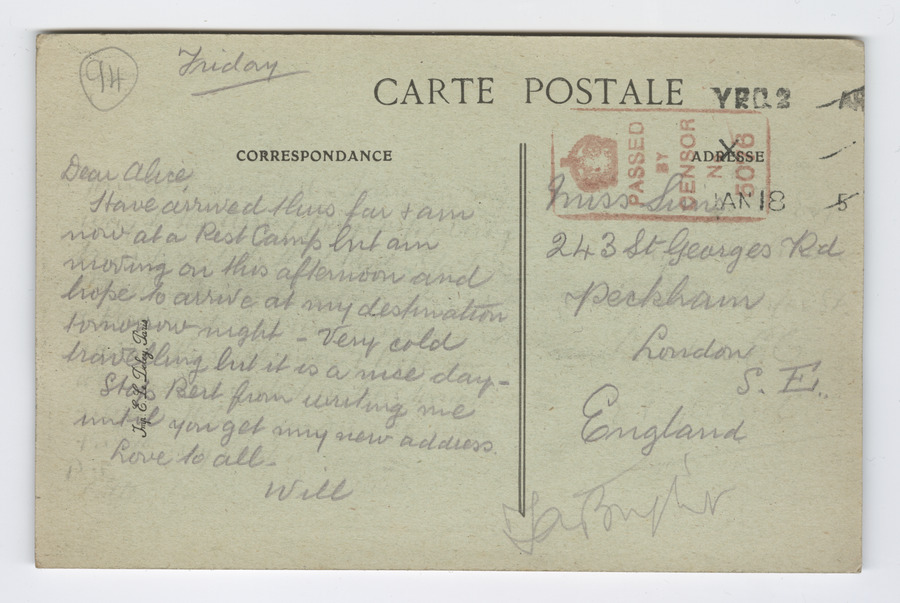 94
Friday
CARTE POSTALE
YRQ.2
CORRESPONDANCE
ADRESSE
PASSED
BY
CENSOR
No
5096
X
JAN 18
5
Dear Alice
Have arrived thus far + am
now at a Rest Camp but am
moving on this afternoon and
hope to arrive at my destination
tomorrow night - Very cold
travelling but it is a nice day -
Best from writing me
until you get my new address.
Love to all -
Will
Imp. E. Le Deley, Paris
Miss
243 St Georges Rd
Peckham
London
S. E.
England